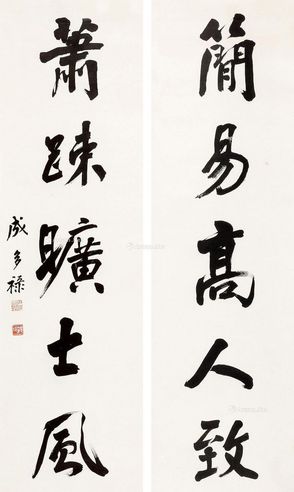 簡易高人致
蕭疎曠士風
成多祿